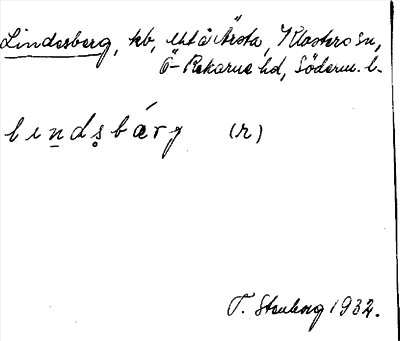 Lindesberg, kb, uhl å Årsta, Klosters sn,
Ö-Rekarne hd, Söderm. l.
lin̲ds̥bǽrg (r)
T. Stenberg 1932.